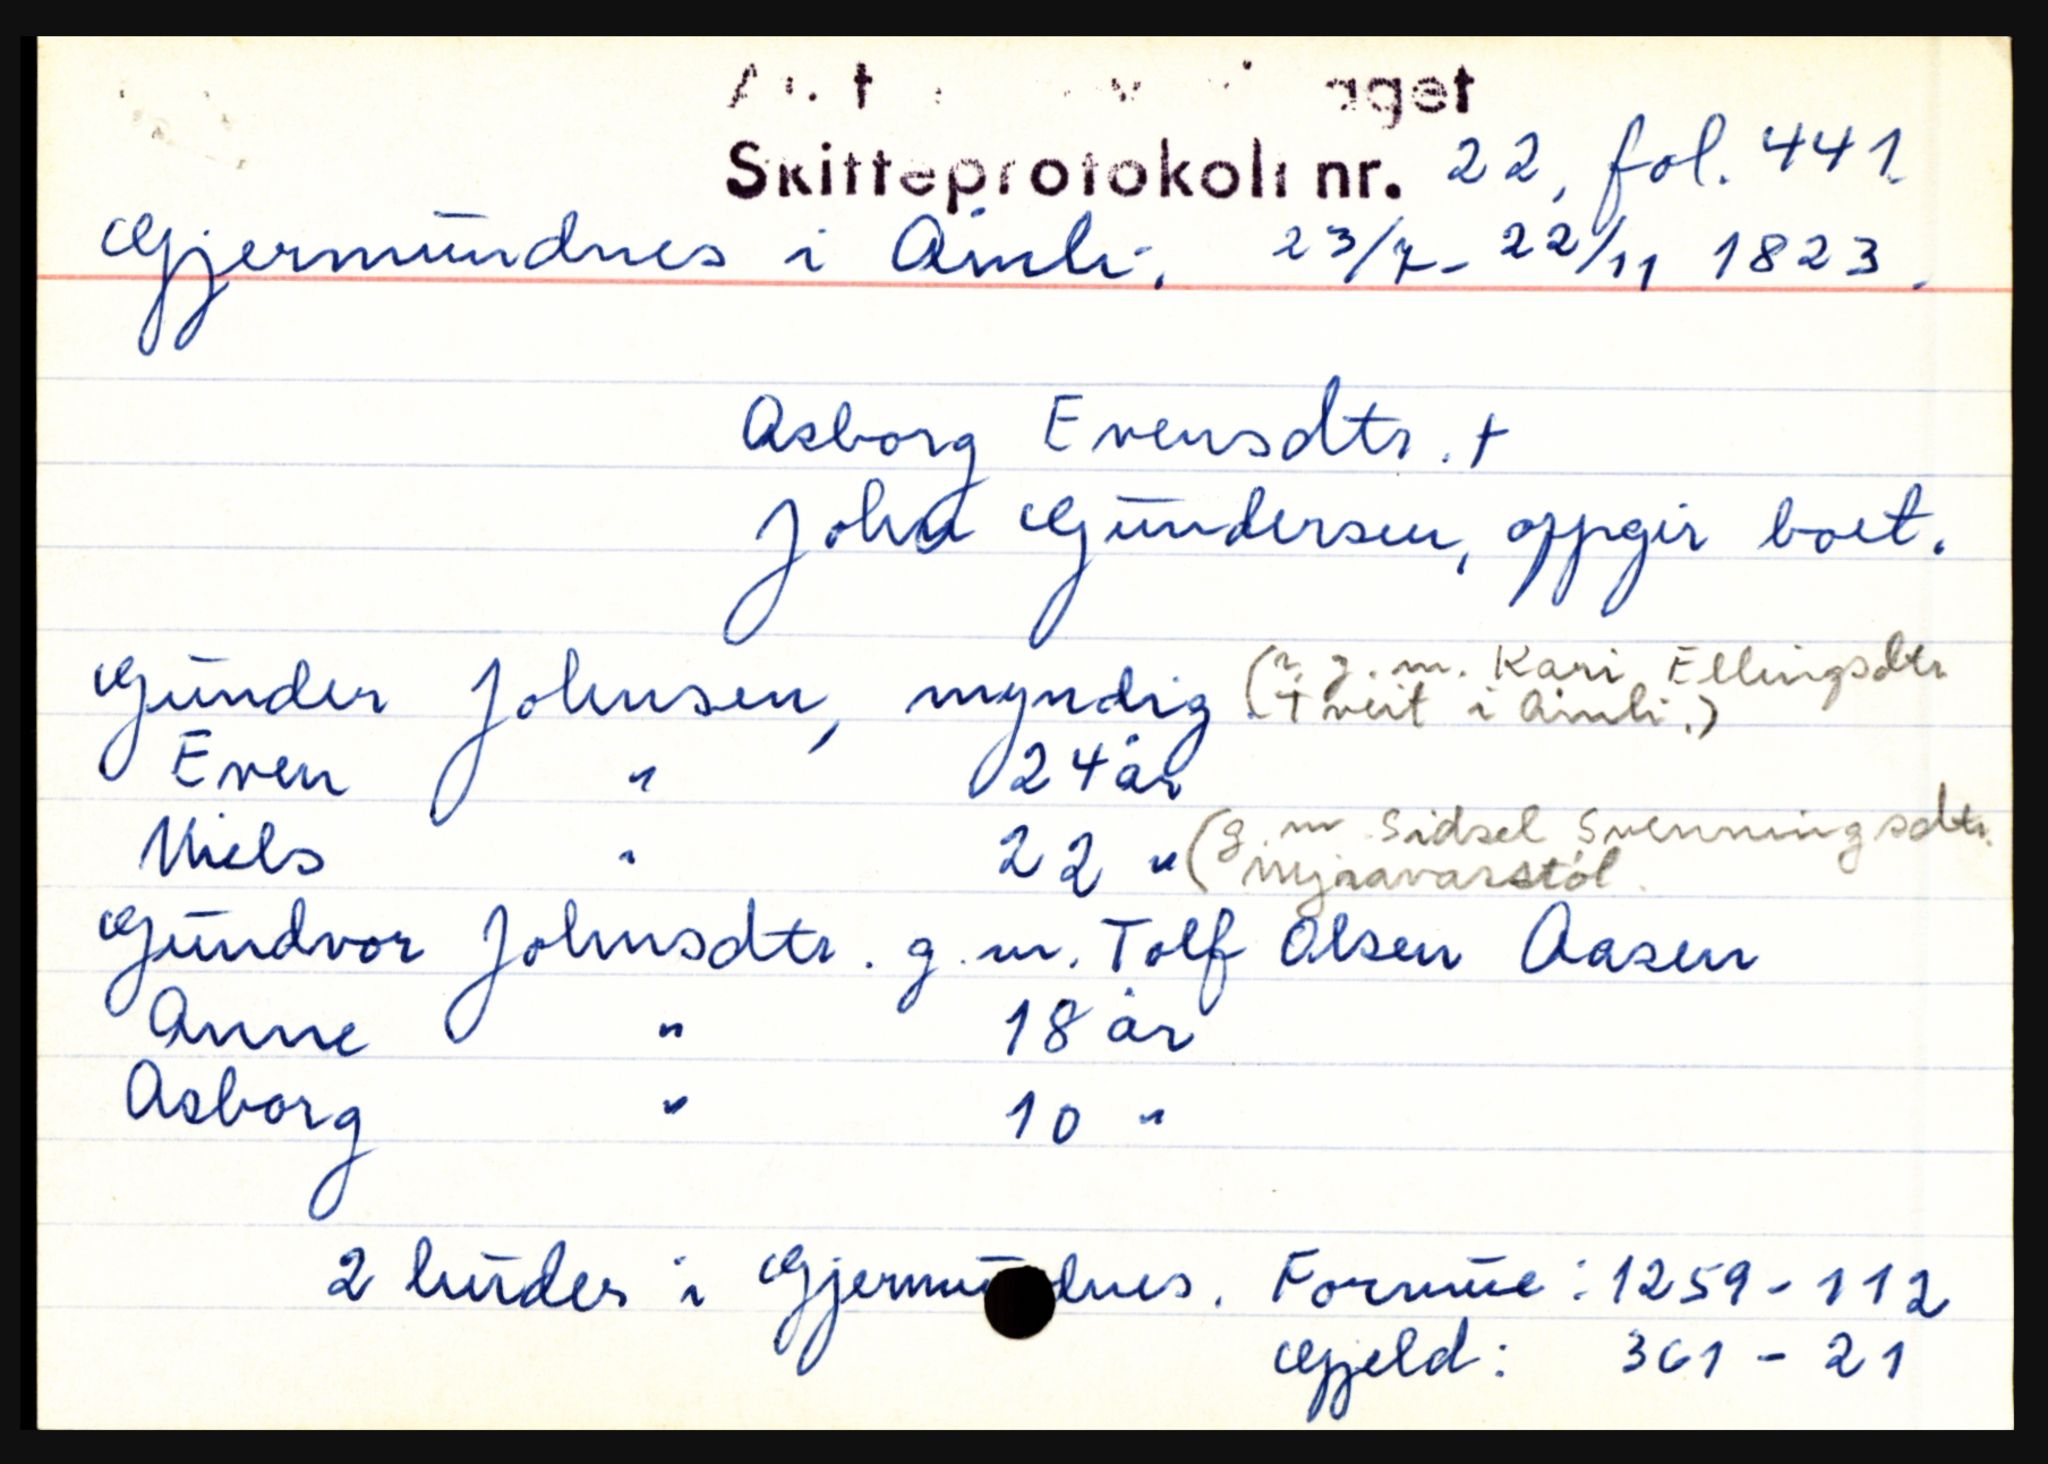 Skifteprotokoll nr. 22, fol. 441.
Gjermundnes i Åmli. 23/7 - 22/11 1823.
Asborg Evensdtr. +
John Gundersen, oppgir boet.
Gunder Johnsen, myndig (g.m. Kari Ellingsdtr.
Tveit i Åmli.)
Even " 24 år
Niels " 22 " (g.m. Sidsel Svenningsdtr.
Gundvor Johnsdtr. g.m. Tolf Olsen Aasen
Anne " 18 år
Asborg " 10 "
2 huder i Gjermundnes. Formue: 1259 - 112
Gjeld: 361 - 21